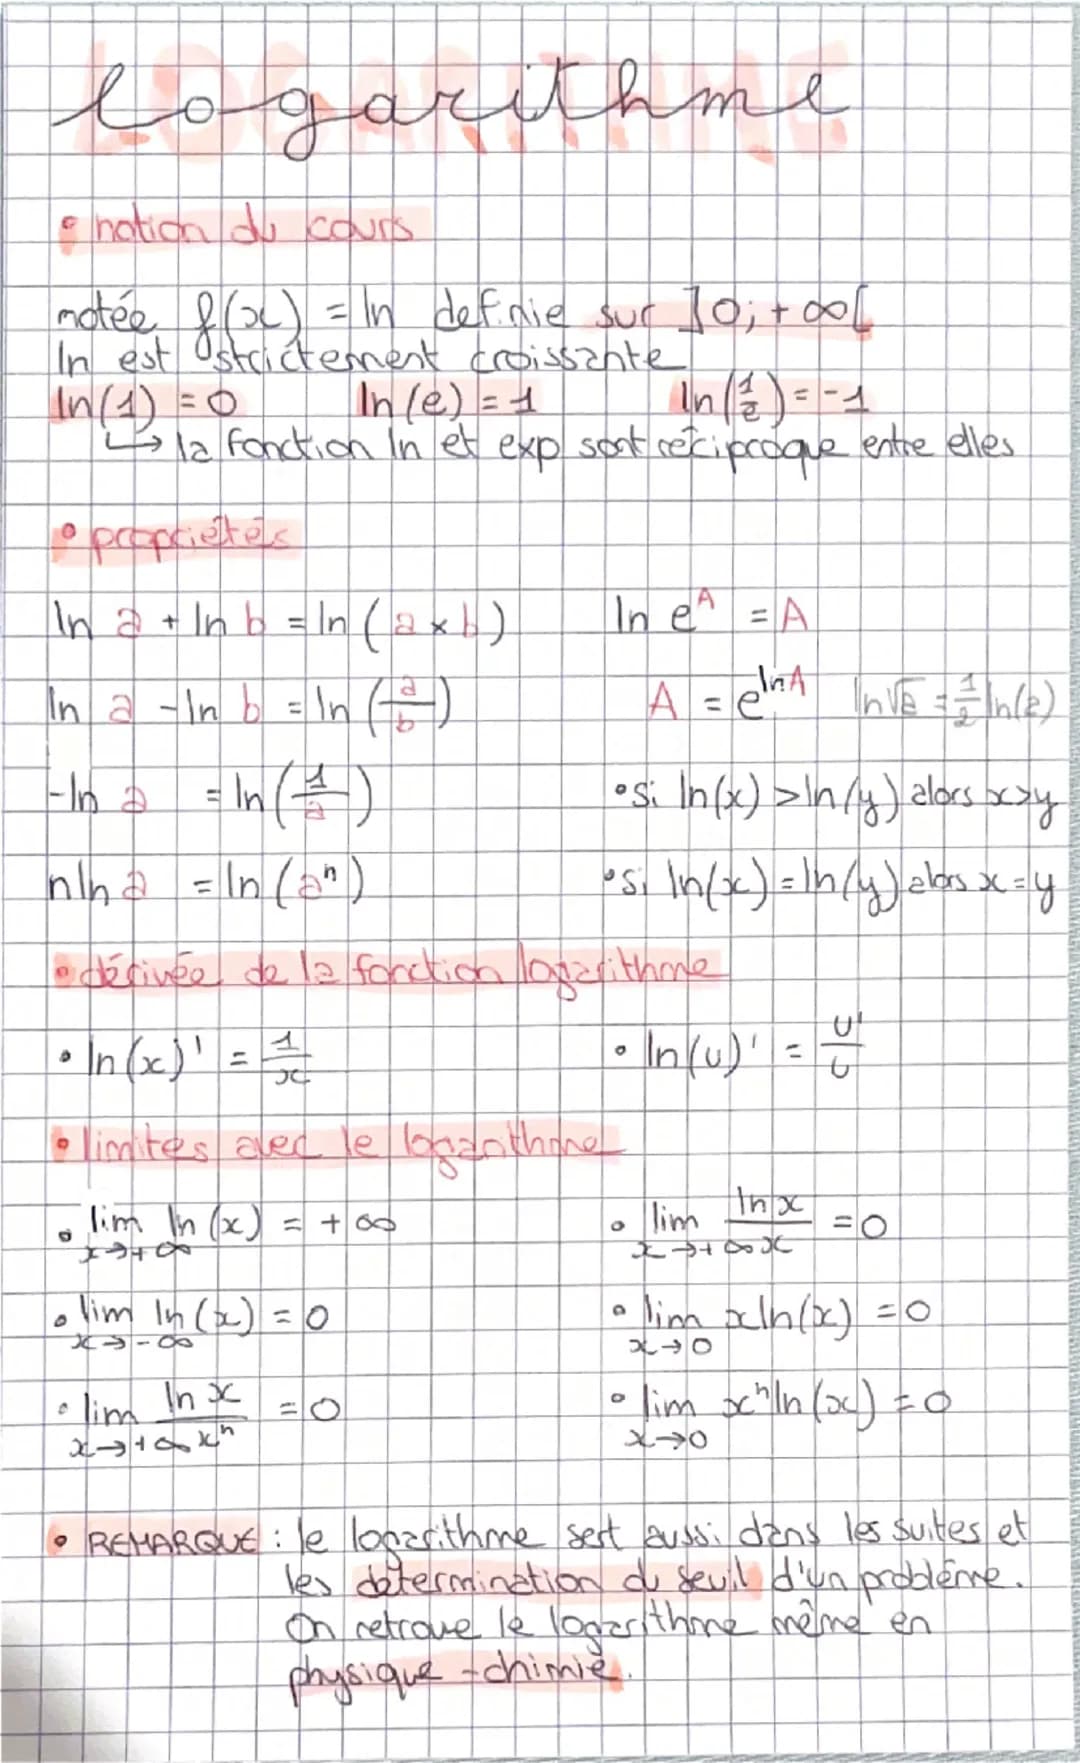 LOGARITHME
logarithme
• notion du cours
notée f(x) = ln definie sur ]0; +∞[
ln est strictement croissante
ln(1) = 0 ln(e) = 1 ln(1/e) = -1
↳ la fonction ln et exp sont réciproque entre elles
• propriétés
ln a + ln b = ln (a × b) ln e^A = A
ln a - ln b = ln (a/b) A = e^lnA ln√a = 1/2 ln(a)
-ln a = ln(1/a) • si ln(x) > ln(y) alors x>y
nln a = ln (a^n) • si ln(x) = ln(y) alors x = y
• dérivée de la fonction logarithme
• ln(x)' = 1/x • ln(u)' = u'/u
• limites avec le logarithme
• lim x→+∞ ln (x) = +∞ • lim x→+∞ ln x/x = 0
• lim x→-∞ ln(x) = 0 • lim x→0 xln(x) = 0
• lim x→+∞ ln x/x^n = 0 • lim x→0 x^n ln(x) = 0
• REMARQUE : le logarithme sert aussi dans les suites et
les determination du seuil d'un problème.
On retrouve le logarithme même en
physique-chimie.